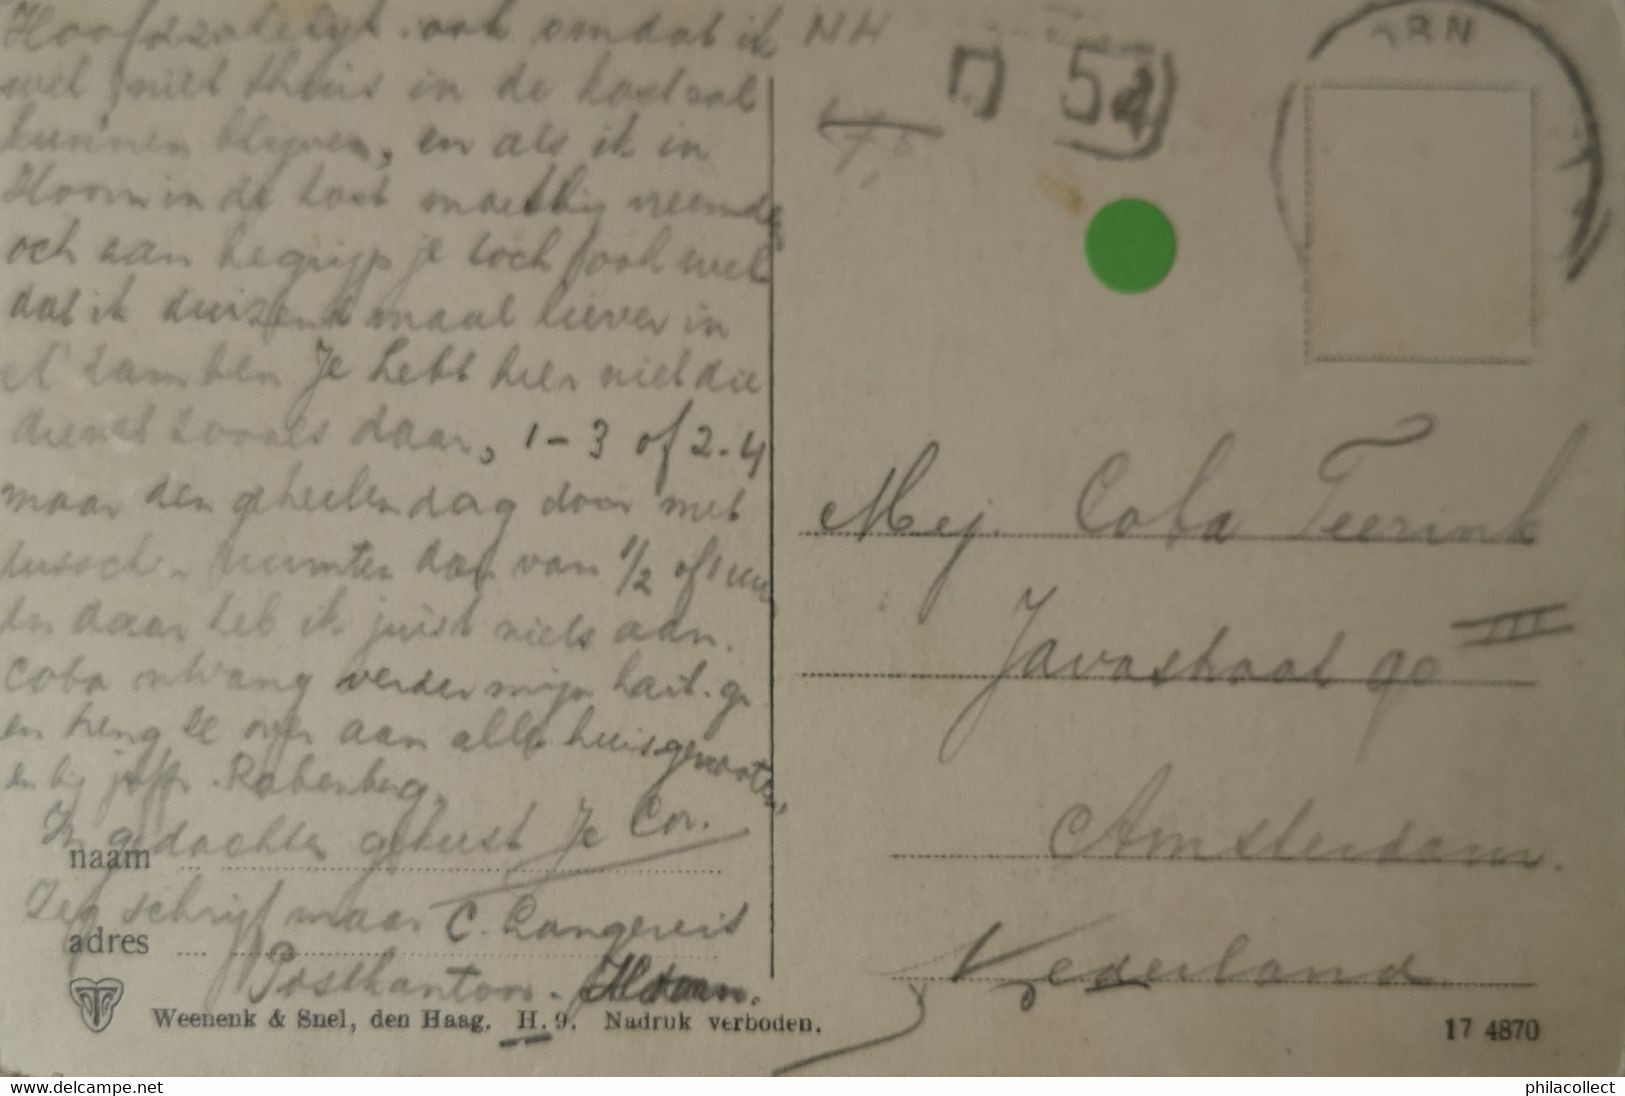 Hoofdzakelijk ook omdat ik
wel niet thuis in de kost zal
kunnen blijven, en als ik in
Hoorn in de kost moet
och dan begrijp je toch ook wel
dat ik duizend maal liever in
A'dam ben Je hebt hier niet die
dienst zooals daar, 1-3 of 2-4
maar den geheelen dag door met
tussch. ruimten daar van 1/2 of 1 uur
En daar heb ik juist niets aan.
Coba ontvang verder mijn hart. gr
en breng ze over aan alle huisgenooten,
en bij Joffr. Rabenberg.
In gedachten gekust Je Cor.
naam
Zeg schrijf maar C. Langereis
adres
Postkantoor. Hoorn.
Weenenk & Snel, den Haag. H. 9. Nadruk verboden.
NH
54
ORN
Mej. Coba Teerink
Javastraat 90 III
Amsterdam.
Nederland
17 4870
All rights reserved - Tous droits réservés
philacollect